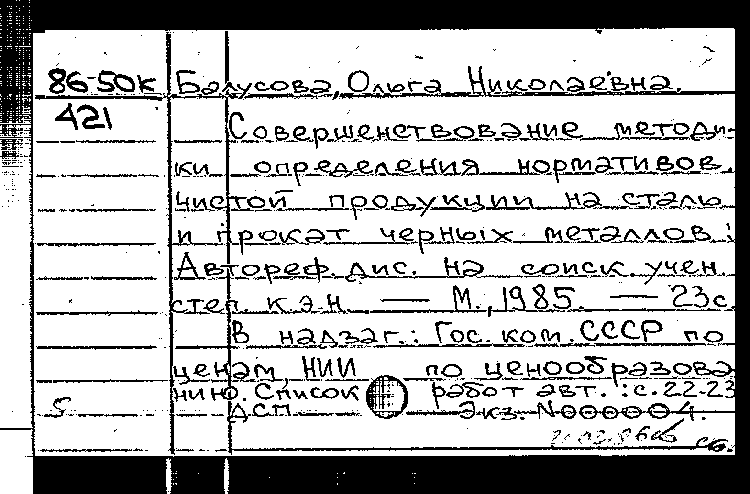 86-50к Балусова, Ольга Николаевна.
421 Совершенствование методи-
ки определения нормативов
чистой продукции на сталь
и прокат черных металлов :
Автореф. дис. на соиск. учен.
степ. к.э.н. — М., 1985. — 23с.
В надзаг.: Гос. ком. СССР по
ценам, НИИ по ценообразова
нию. Список работ авт. : с.22-23
5 ДСП Экз. N000004.
сб.